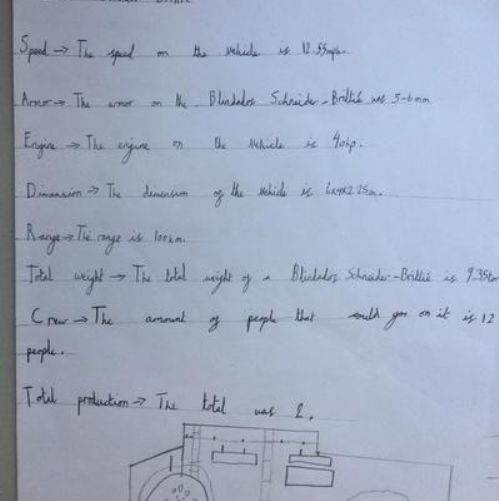 Speed → The speed on the vehicle is 12.55mph.
Armor → The armor on the Blindados Schneider-Brillié was 5-6mm
Engine → The engine on the vehicle is 40hp.
Dimension → The dimension of the vehicle is 6x4x2.25m.
Range → The range is 100km.
Total weight → The total weight of a Blindados Schneider-Brillié is 9.35to
Crew → The amount of people that could goe on it is 12
people.
Total production → The total was 2.